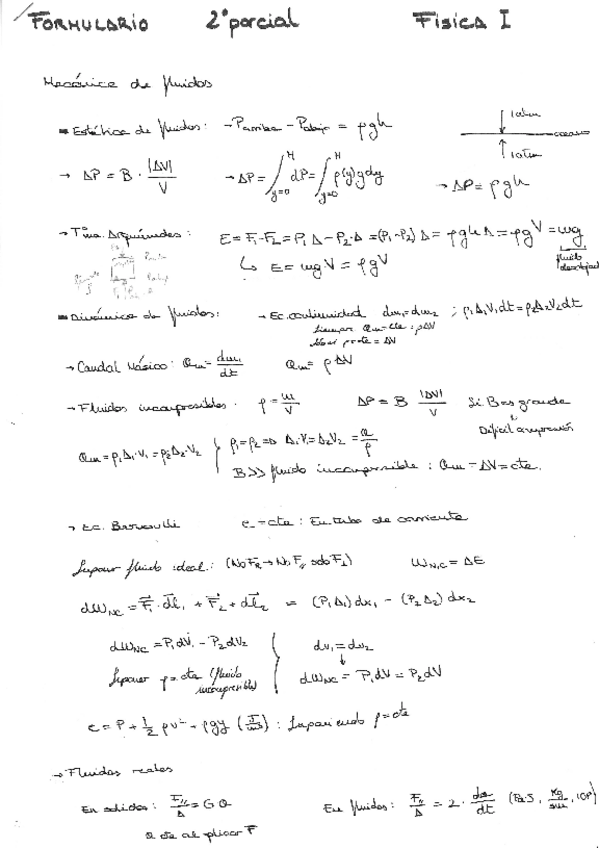 FORMULARIO 2º parcial Física I
Mecánica de fluidos
Estática de fluidos: → Parriba - Pabajo = ρgh
1 atm
→ ΔP = B · |ΔV| / V → ΔP = ∫_{y=0}^{H} dP = ∫_{y=0}^{H} ρ(y)gdy
1 atm
→ ΔP = ρgh
→ Tma. Arquímedes: E = F₁-F₂ = P₁A - P₂·A = (P₁-P₂)A = ρghA = ρgV = mg
fluido
↳ E = mgV = ρgV
Dinámica de fluidos: → Ec. continuidad dm₁ = dm₂ ; ρ₁A₁V₁dt = ρ₂A₂V₂dt
Siempre Qm = cte = ρAV
→ Caudal Másico: Qm = dm₁/dt Qm = ρAV
→ Fluidos incompresibles · ρ = m/V ΔP = B |ΔV|/V Si B es grande
Difícil compresión
Qm = ρ₁A₁·V₁ = ρ₂A₂·V₂ { ρ₁ = ρ₂ ⇒ A₁·V₁ = A₂V₂ = Q/ρ
B>> fluido incompresible : Qm = AV = cte.
→ Ec. Bernoulli e = cte : En tubo de corriente
Suponer fluido ideal: (No FR → No F∥ solo F⊥) WN.C = ΔE
dWNC = F₁·dl₁ + F₂ + dl₂ = (P₁A₁)dx₁ - (P₂A₂)dx₂
dWNC = P₁dV₁ - P₂dV₂ } dv₁ = dv₂
Suponer ρ = cte (fluido
incompresible) dWNC = P₁dV = P₂dV
e = P + 1/2 ρv² + ρgy (J/m³) : Suponiendo ρ = cte
→ Fluidos reales
En sólidos: F∥/A = G θ En fluidos: F∥/A = 2 · dα/dt (Pa·S,
θ cte al aplicar F